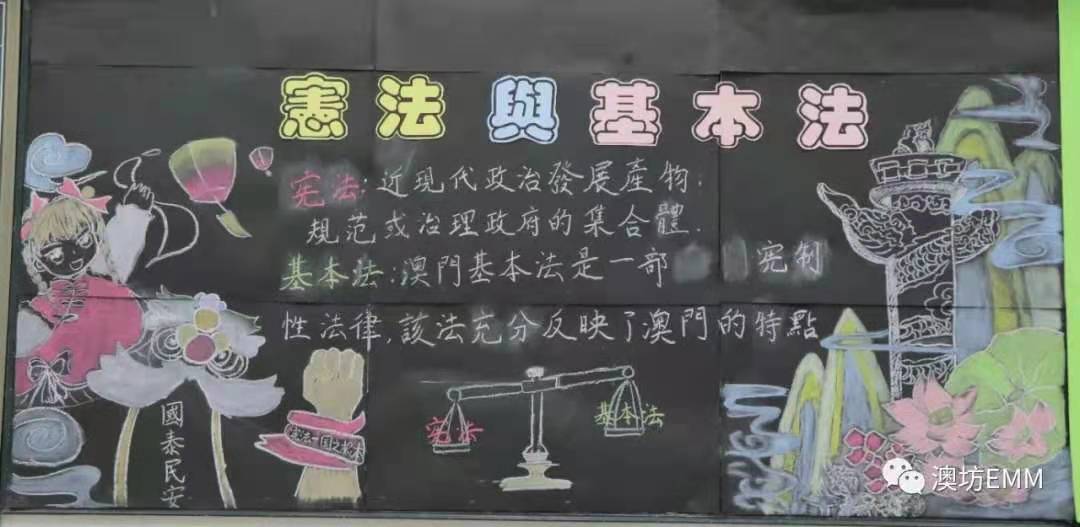 憲法與基本法
宪法:近現代政治發展產物;
規范或治理政府的集合體.
基本法:澳門基本法是一部 宪制
性法律,該法充分反映了澳門的特點
國泰民安
宪法
基本法
澳坊EMM